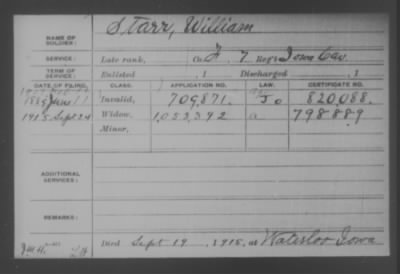 Starr, William
NAME OF SOLDIER:
SERVICE: Late rank, Co. F, 7 Reg't Iowa Cav.
TERM OF SERVICE: Enlisted , 1 Discharged , 1
DATE OF FILING. CLASS. APPLICATION NO. LAW. CERTIFICATE NO.
1889 June 11 Invalid, 709,871. 820,088.
1915 Sept 24 Widow, 1,053,392 a 798889
Minor,
ADDITIONAL SERVICES:
REMARKS:
Died Sept 19, 1915, at Waterloo Iowa